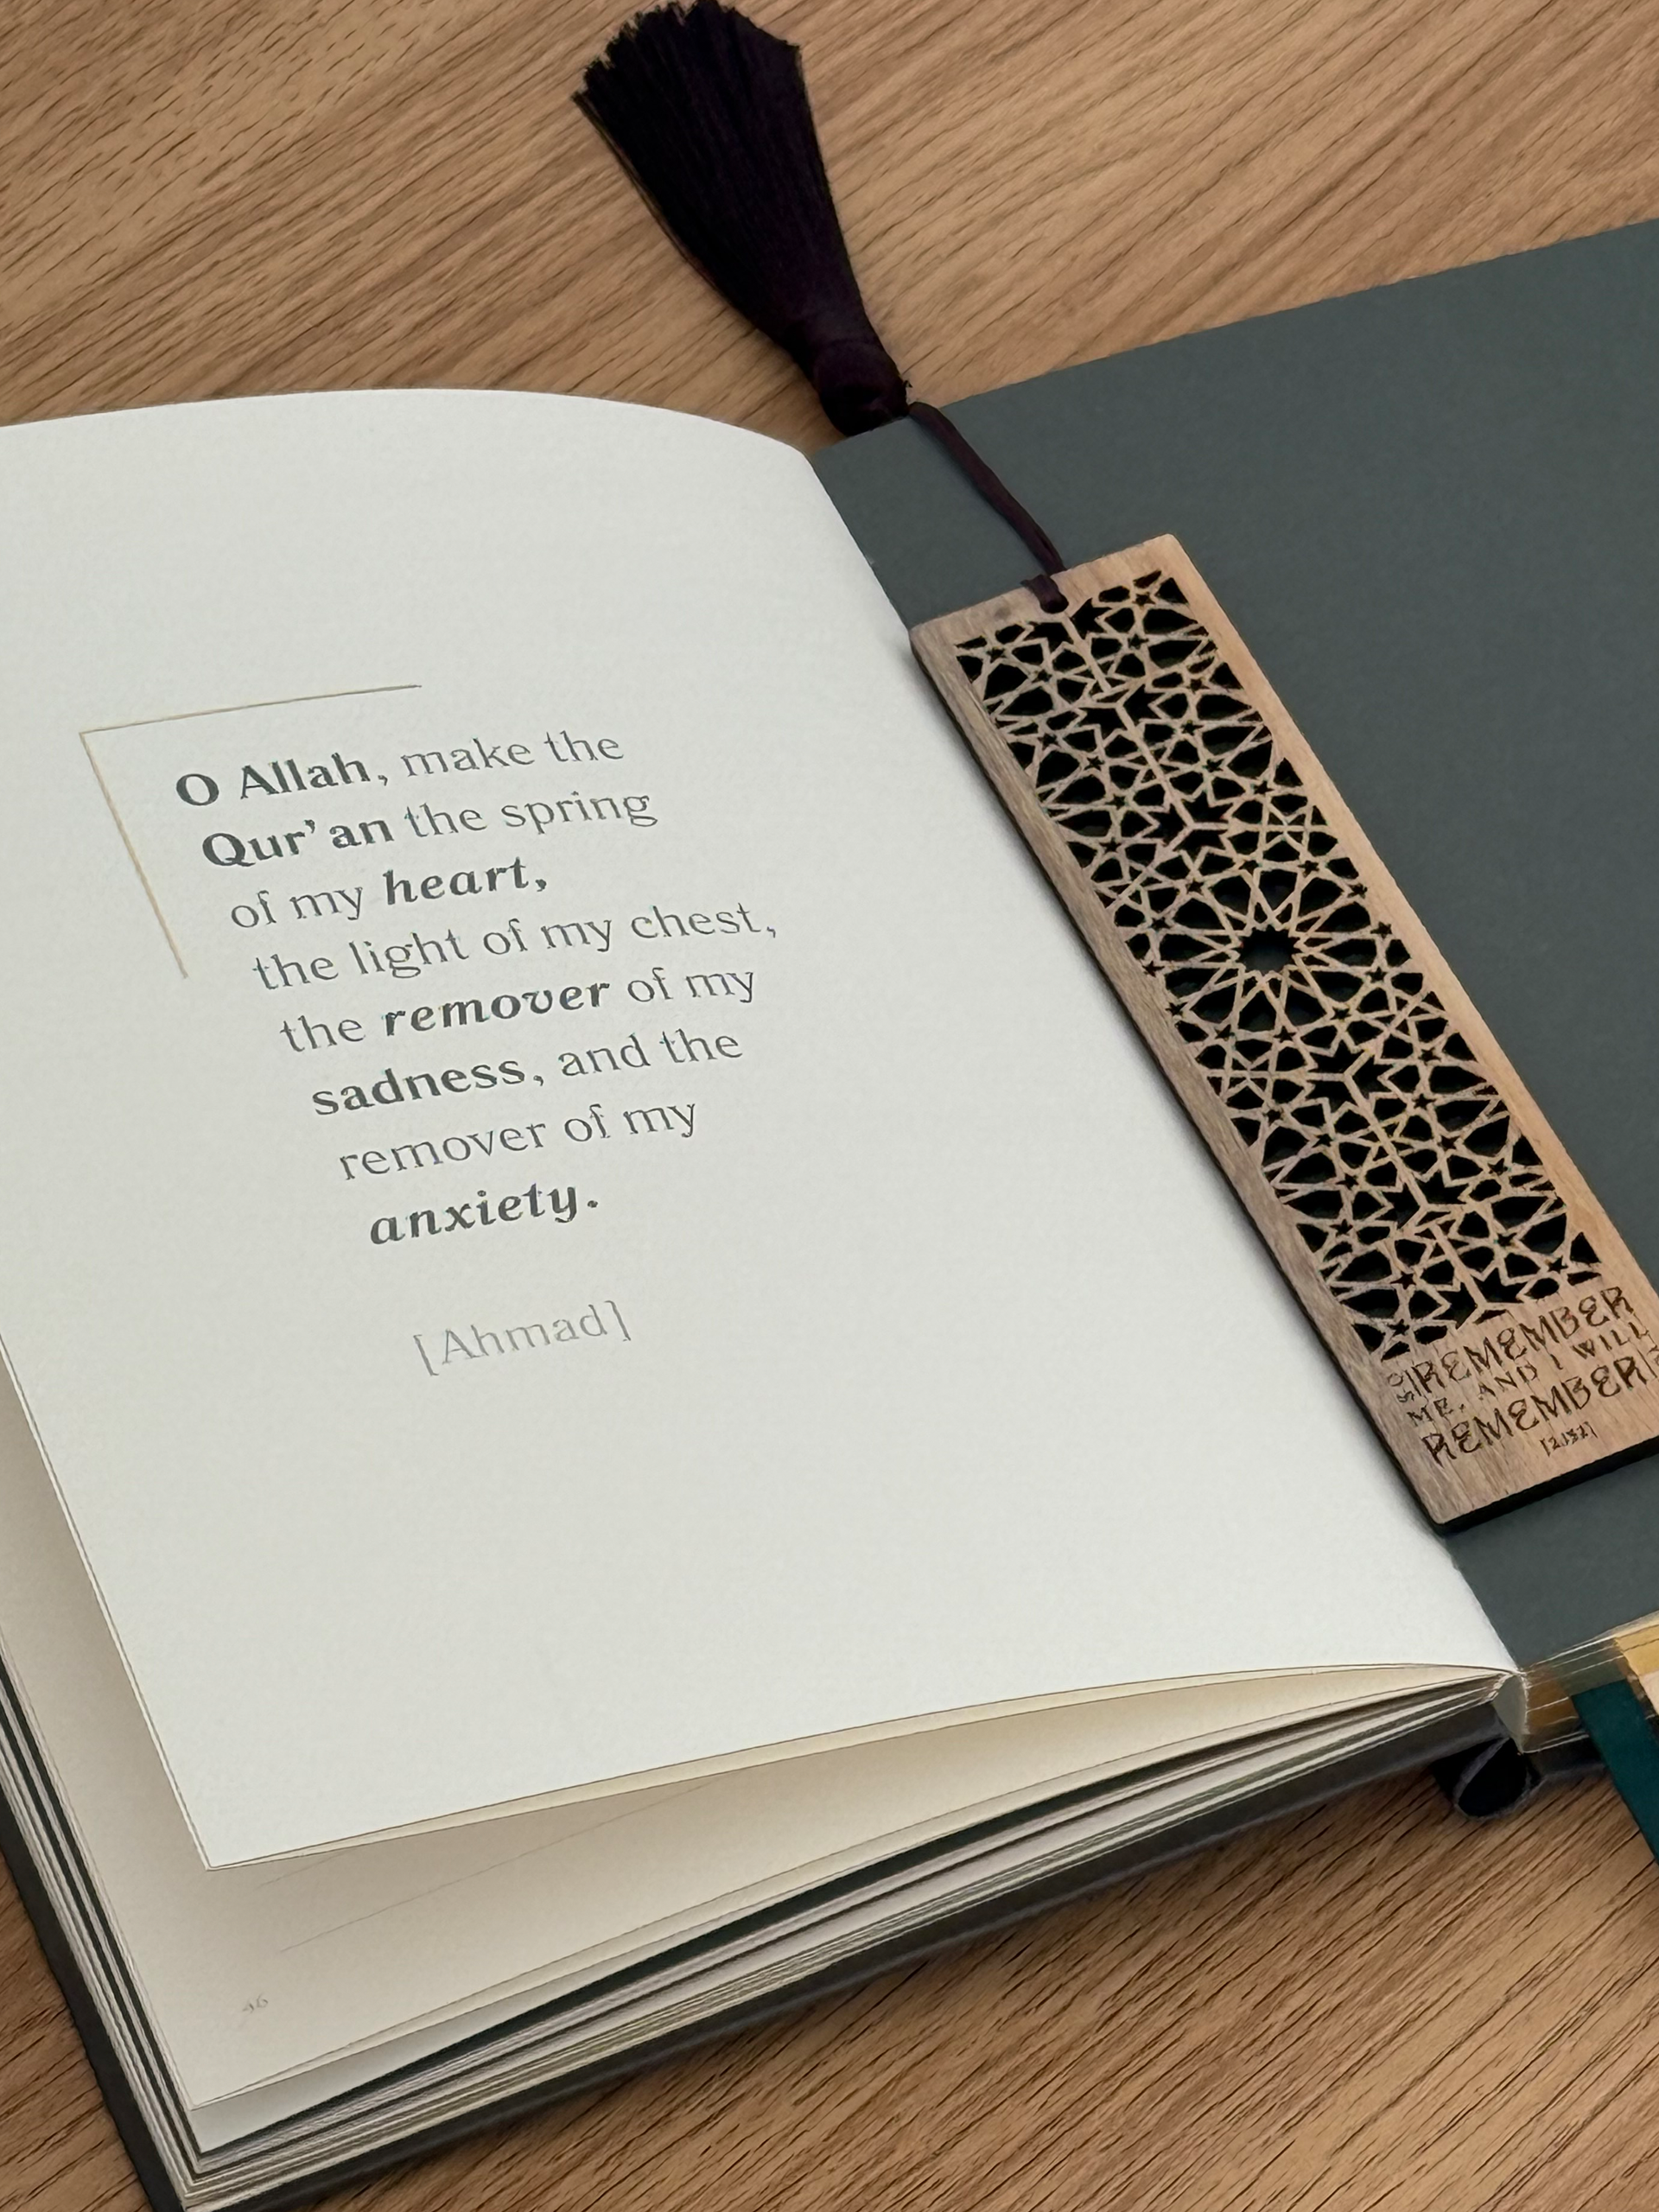 O Allah, make the
Qur'an the spring
of my heart,
the light of my chest,
the remover of my
sadness, and the
remover of my
anxiety.
[Ahmad]
SO REMEMBER
ME, AND I WILL
REMEMBER
[2:152]
46